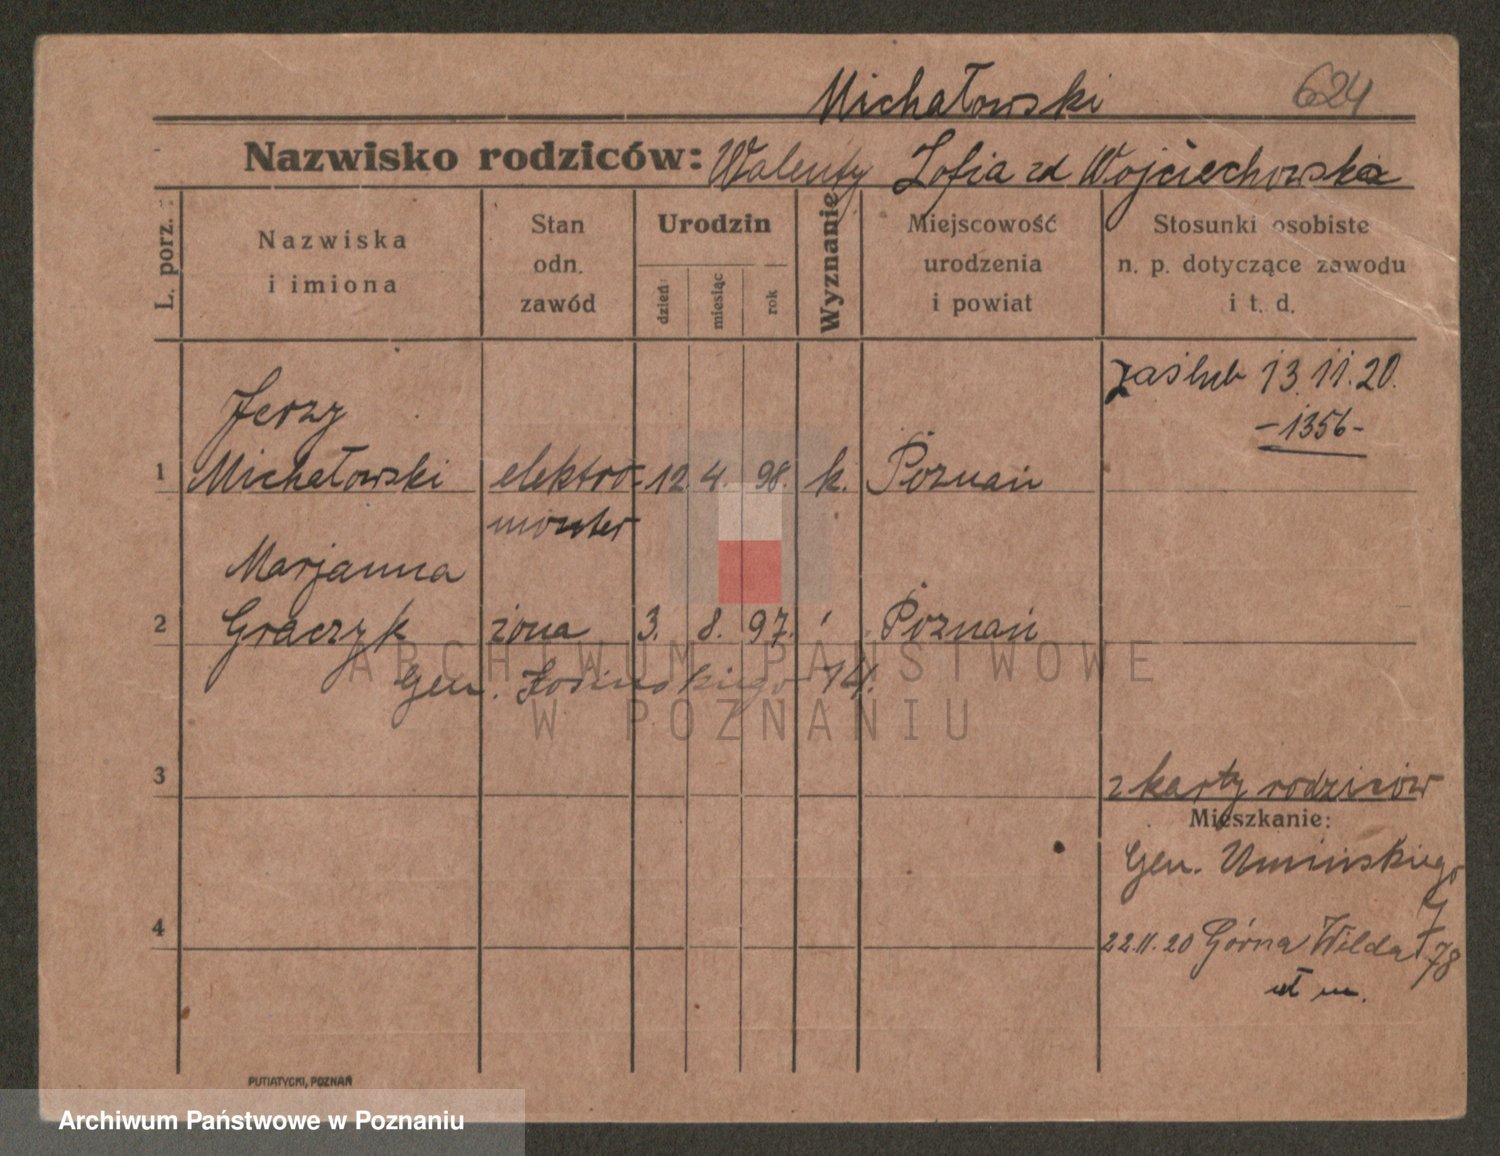 Michałowski 624
Nazwisko rodziców: Walenty Zofia zd Wojciechowska
L. porz.
Nazwiska
i imiona
Stan
odn.
zawód
Urodzin
dzień
miesiąc
rok
Wyznanie
Miejscowość
urodzenia
i powiat
Stosunki osobiste
n. p. dotyczące zawodu
i t. d.
zaślub 13.11.20.
-1356-
Jerzy
1 Michałowski elektro- 12 4. 98. k. Poznań
monter
Marjanna
2 Graczyk żona 3. 8. 97. Poznań
Gen. 14.
ARCHIWUM PAŃSTWOWE
W POZNANIU
3
z karty rodziców
Mieszkanie:
Gen. Umińskiego
7
4
22.11.20 Górna Wilda 78
PUTIATYCKI, POZNAŃ
Archiwum Państwowe w Poznaniu